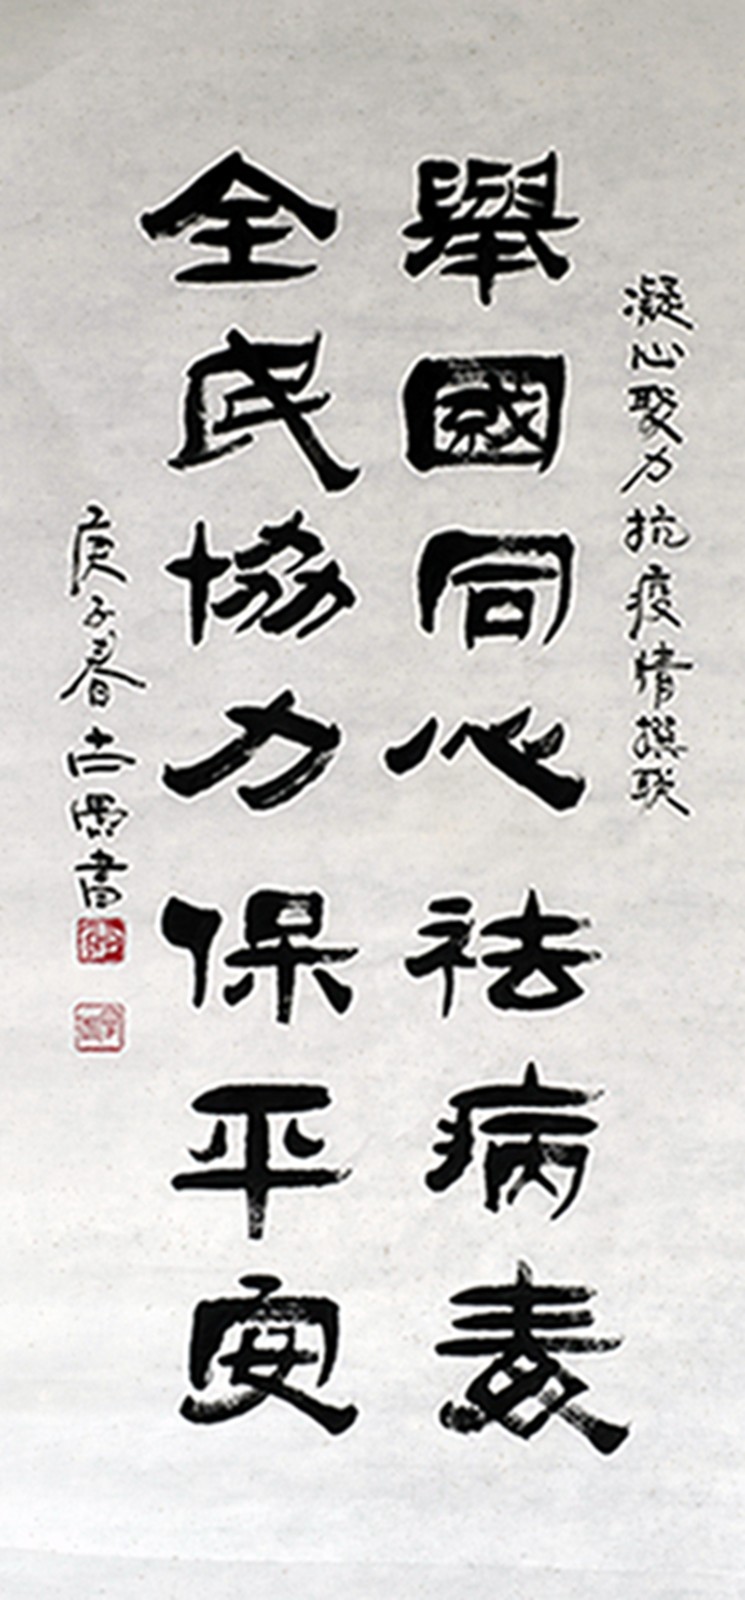 凝心聚力抗疫情撰联
舉國同心祛病毒
全民協力保平安
庚子春書